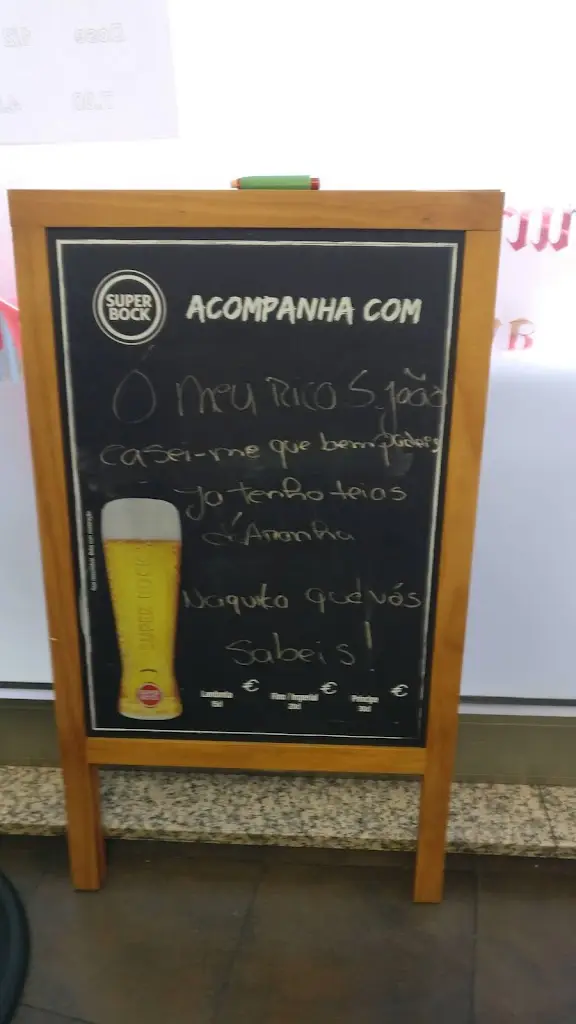 SUPER
BOCK
ACOMPANHA COM
Ó meu Rico S. João
Casei-me que bem podeis
Ja tenho teias
d'Aranha
Naquilo que vós
Sabeis!
SUPER BOCK
Lambreta
15cl
€
Fino / Imperial
20cl
€
Príncipe
30cl
€